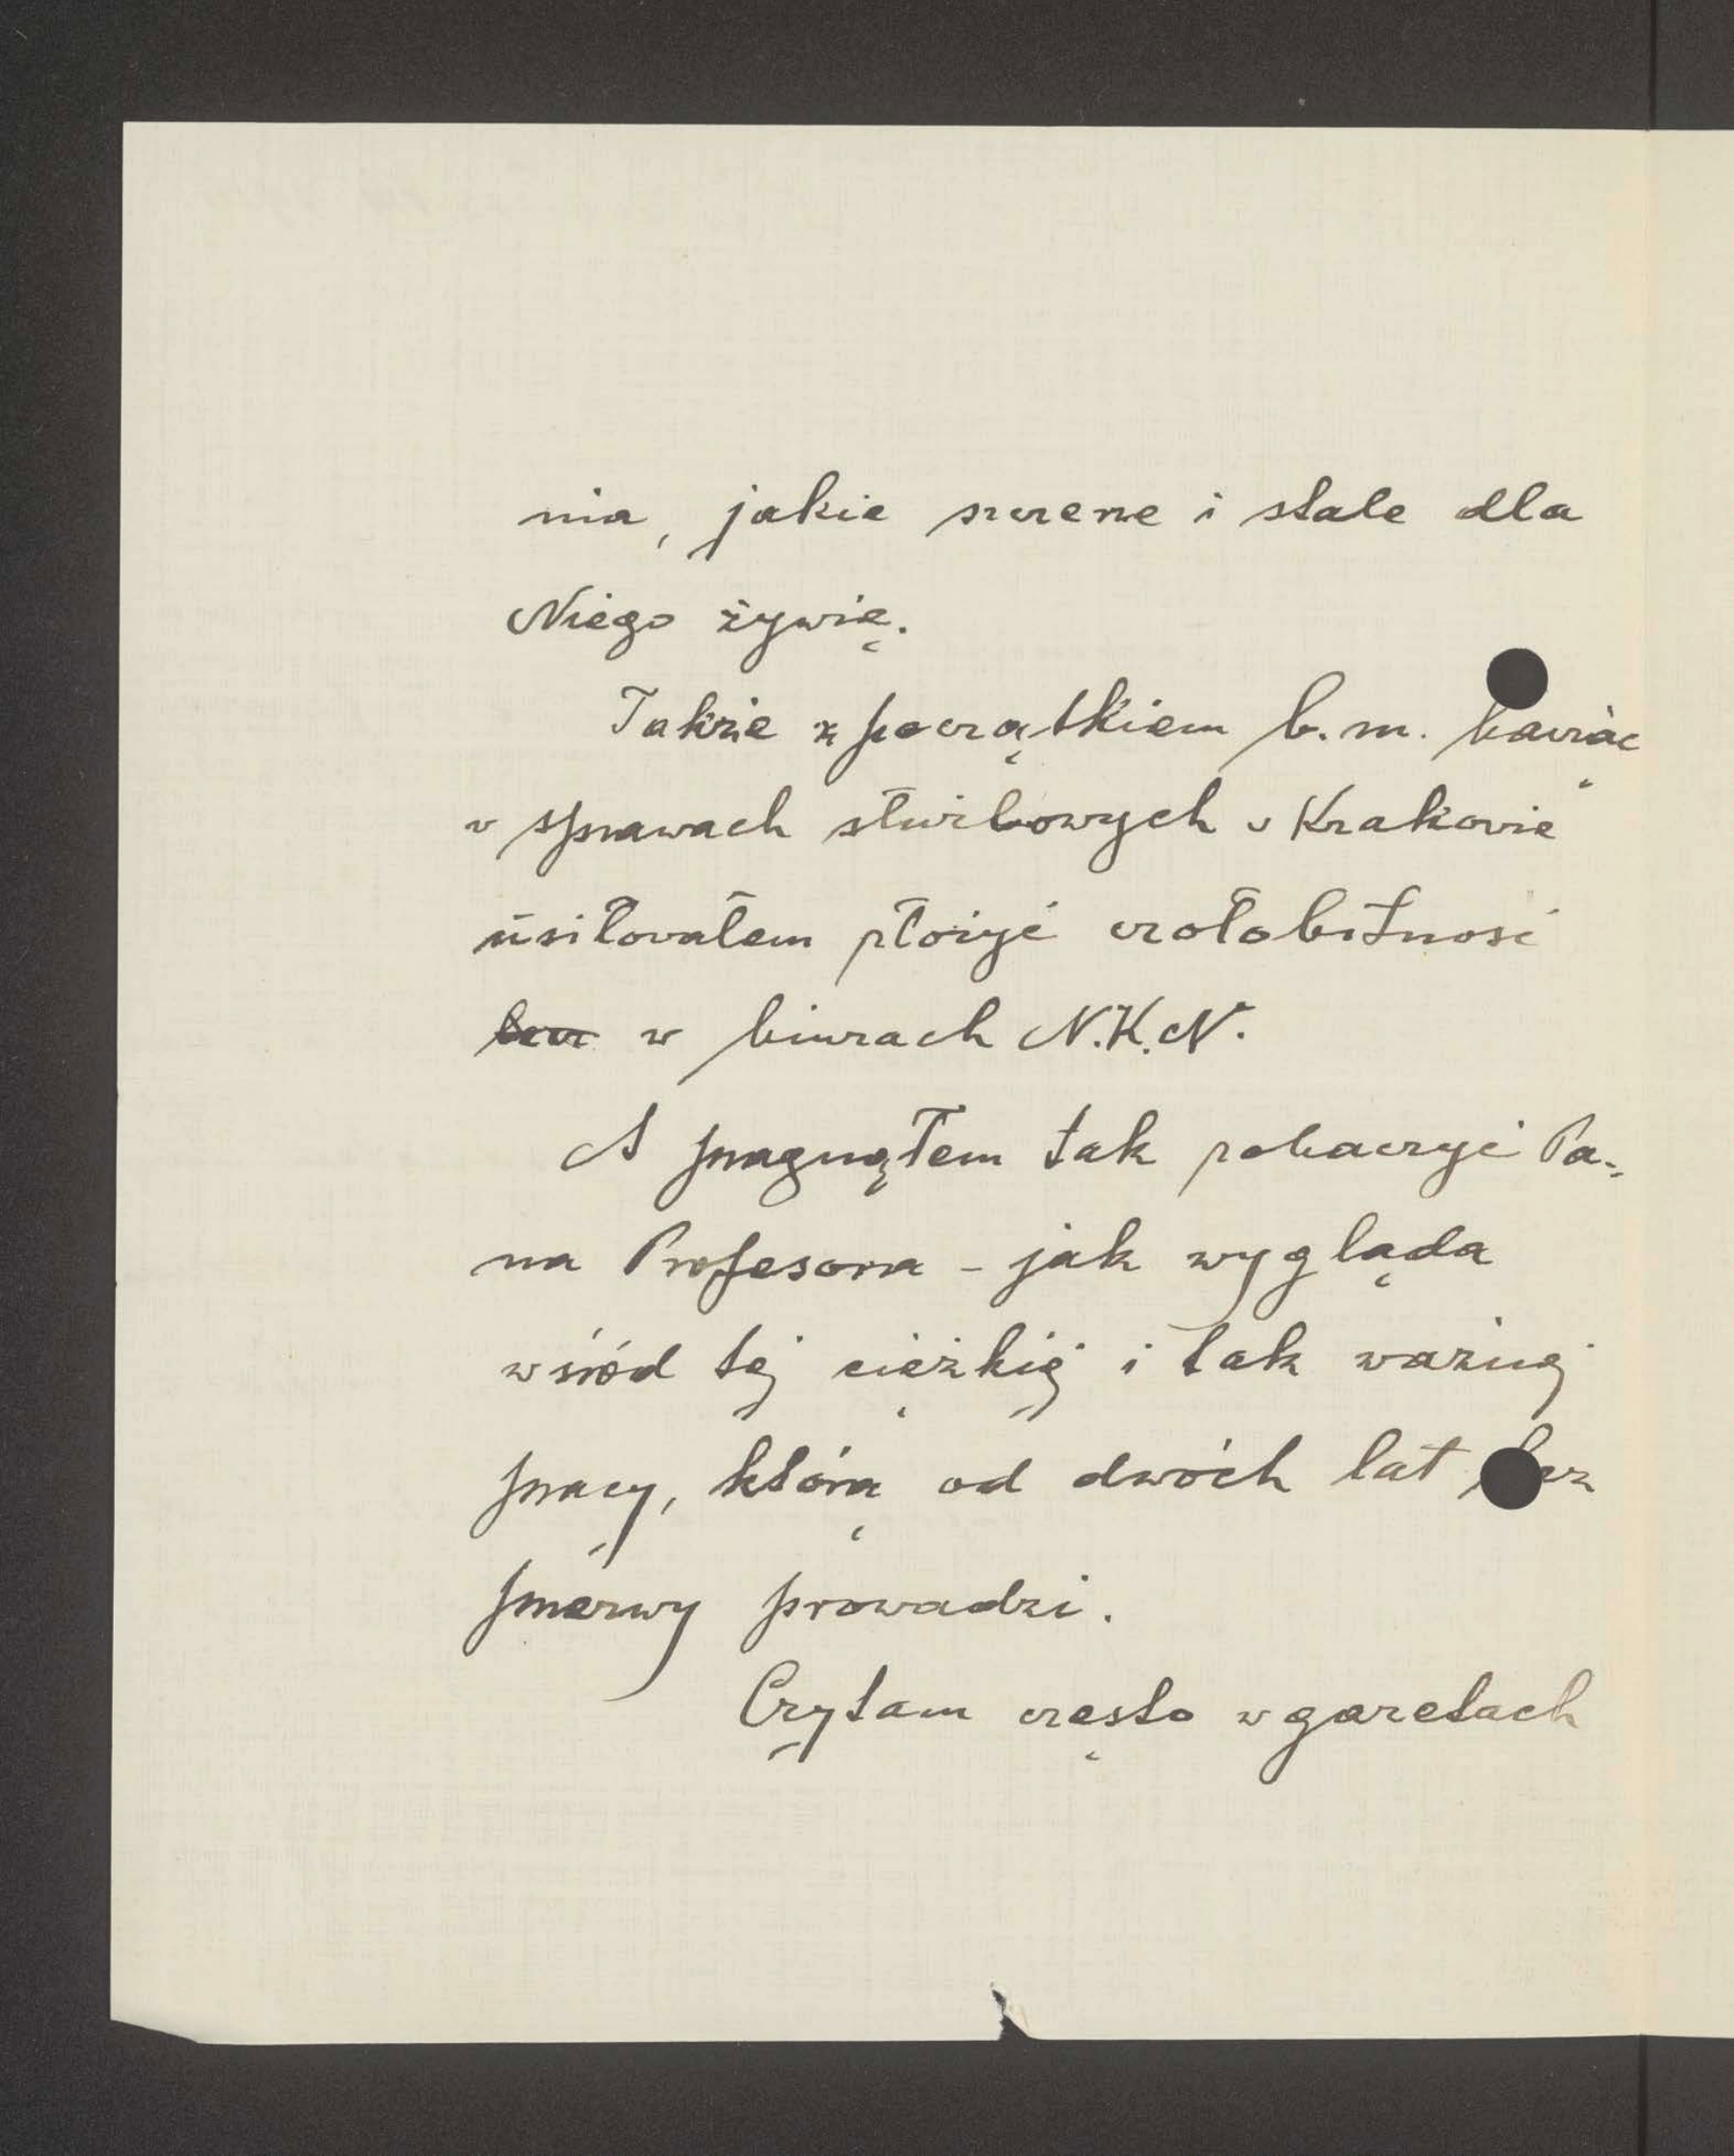 nia, jakie szczere i stale dla
Niego żywię.
Także z początkiem b.m. bawiąc
w sprawach służbowych w Krakowie
usiłowałem złożyć czołobitność
w biurach N.K.N.
A pragnąłem tak zobaczyć Pa-
na Profesora - jak wygląda
wśród tej ciężkiej i tak ważnej
pracy, którą od dwóch lat bez
przerwy prowadzi.
Czytam często w gazetach